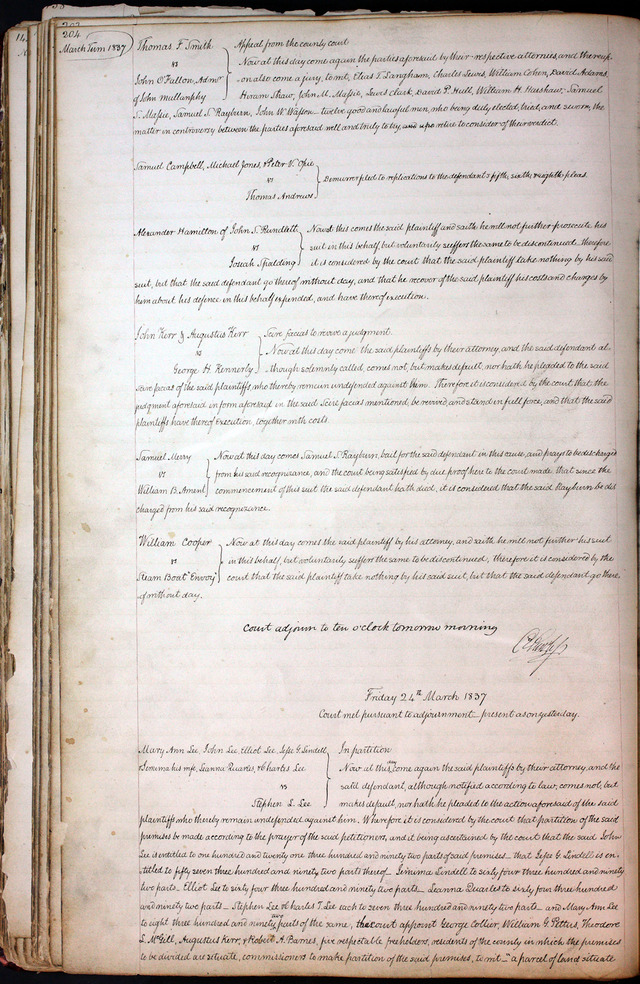 204
March Term 1837
Thomas F. Smith
vs
John O'Fallon, Admr.
of John Mullanphy
Appeal from the county court
Now at this day come again the parties aforesaid by their respective attornies, and thereup-
on also come a jury, to wit, Elias T. Langham, Charles Lewis, William Cohen, David Adams,
Hiram Shaw, John M. Massie, Lewis Clark, David P. Hull, William H. Hawshaw, Samuel
S. Massie, Samuel S. Rayburn, John W. Watson twelve good and lawful men, who being duly elected, tried, and sworn, the
matter in controversy between the parties aforesaid well and truly to try, and upo retire to consider of their verdict.
Samuel Campbell, Michael Jones, & Peter V. Opie
vs
Thomas Andrews
Demurrer pled to replications to the defendants fifth, sixth, & eighth pleas.
Alexander Hamilton of John S. Rundlett
vs
Josiah Spalding
Now at this comes the said plaintiff and saith he will not further prosecute his
suit in this behalf, but voluntarily suffers the same to be discontinued. Therefore
it is considered by the court that the said plaintiff take nothing by his said
suit, but that the said defendant go thereof without day, and that he recover of the said plaintiff his costs and charges by
him about his defence in this behalf expended, and have thereof execution.
John Kerr & Augustus Kerr
vs
George H. Kennerly
Scire facias to revive a judgment.
Now at this day come the said plaintiffs by their attorney, and the said defendant al-
though solemnly called, comes not, but makes default, nor hath he pleaded to the said
scire facias of the said plaintiffs who thereby remain undefended against him. Therefore it is considered by the court that the
judgment aforesaid in form aforesaid in the said Scire facias mentioned, be revived, and stand in full force, and that the said
plaintiffs have thereof execution, together with costs.
Samuel Merry
vs
William B. Ament
Now at this day comes Samuel S. Rayburn, bail for the said defendant in this cause, and prays to be discharged
from his said recognizance, and the court being satisfied by due proof here to the court made, that since the
commencement of this suit the said defendant hath died, it is considered that the said Rayburn be dis
charged from his said recognizance.
William Cooper
vs
Steam Boat "Envoy"
Now at this day comes the said plaintiff by his attorney, and saith he will not further his suit
in this behalf, but voluntarily suffers the same to be discontinued, therefore it is considered by the
court that the said plaintiff take nothing by his said suit, but that the said defendant go there
of without day.
Court adjourn to ten o'clock tomorrow morning
Friday 24th March 1837
Court met pursuant to adjournment present as on yesterday.
Mary Ann Lee, John Lee, Elliot Lee, Jesse G. Lindell
& Jemima his wife, Leanna Quarles, & Charles Lee
vs
Stephen L. Lee
In partition
Now at this day come again the said plaintiffs by their attorney, and the
said defendant, although notified according to law, comes not, but
makes default, nor hath he pleaded to the action aforesaid of the said
plaintiffs who thereby remain undefended against him. Wherefore it is considered by the court that partition of the said
premises be made according to the prayer of the said petitioners, and it being ascertained by the court that the said John
Lee is entitled to one hundred and twenty one three hundred and ninety two parts of said premises – that Jesse G. Lindell is en-
titled to fifty seven three hundred and ninety two parts thereof – Jemima Lindell to sixty four three hundred and ninety
two parts – Elliot Lee to sixty four three hundred and ninety two parts – Leanna Quarles to sixty four three hundred
and ninety two parts – Stephen Lee & Charles T. Lee each to seven three hundred and ninety two parts – and Mary Ann Lee
to eight three hundred and ninety two parts of the same, the court appoint George Collier, William G. Pettus, Theodore
L. McGill, Augustus Kerr, & Robert A. Barnes, five respectable freeholders, residents of the county in which the premises
to be divided are situate, commissioners to make partition of the said premises, to wit – "a parcel of land situate